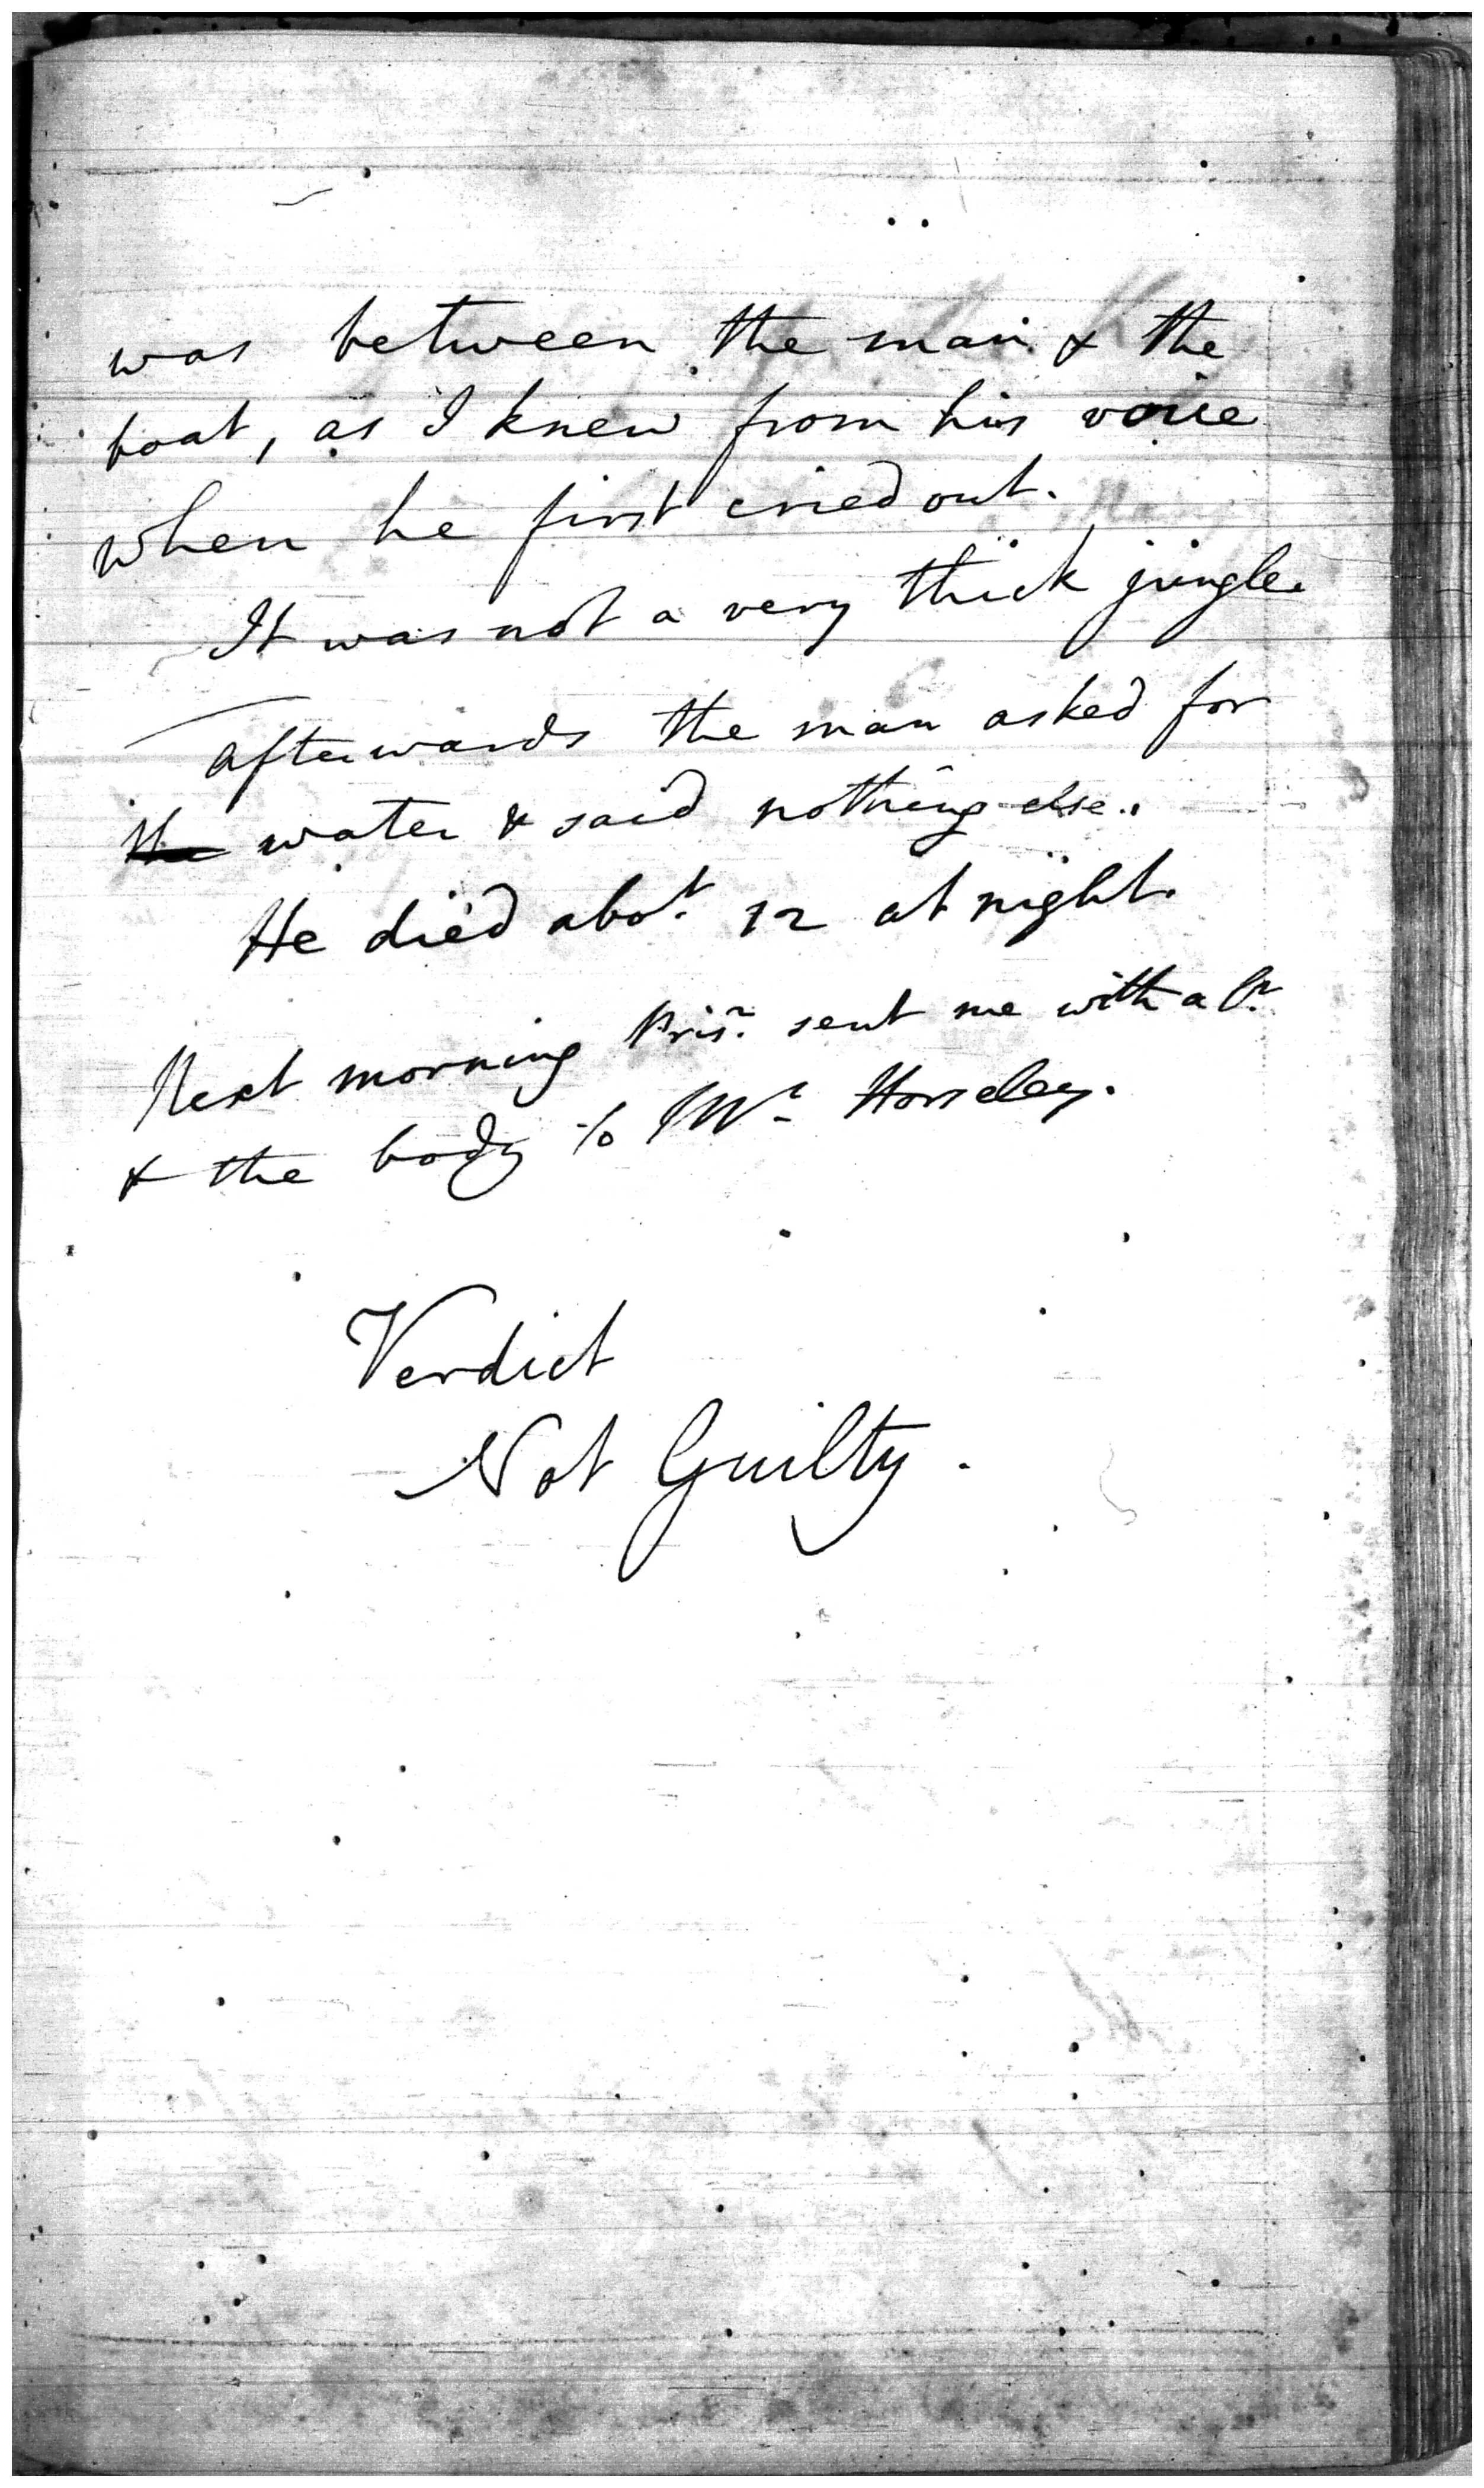 was between the man & the
boat, as I knew from his voice
when he first cried out.
It was not a very thick jungle.
Afterwards the man asked for
the water & said nothing else.
He died abot. 12 at night.
Next morning Prisr. sent me with a lr.
& the body to Mr Horseley.
Verdict
Not Guilty.